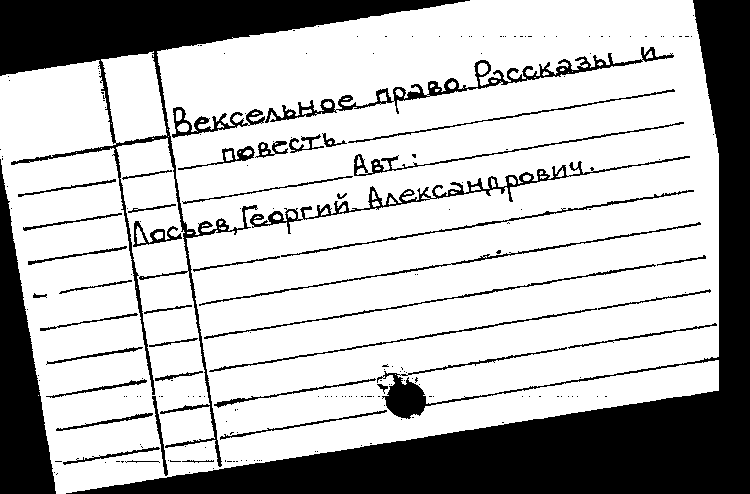 Вексельное право. Рассказы и
повесть.
Авт.:
Лосьев, Георгий Александрович.